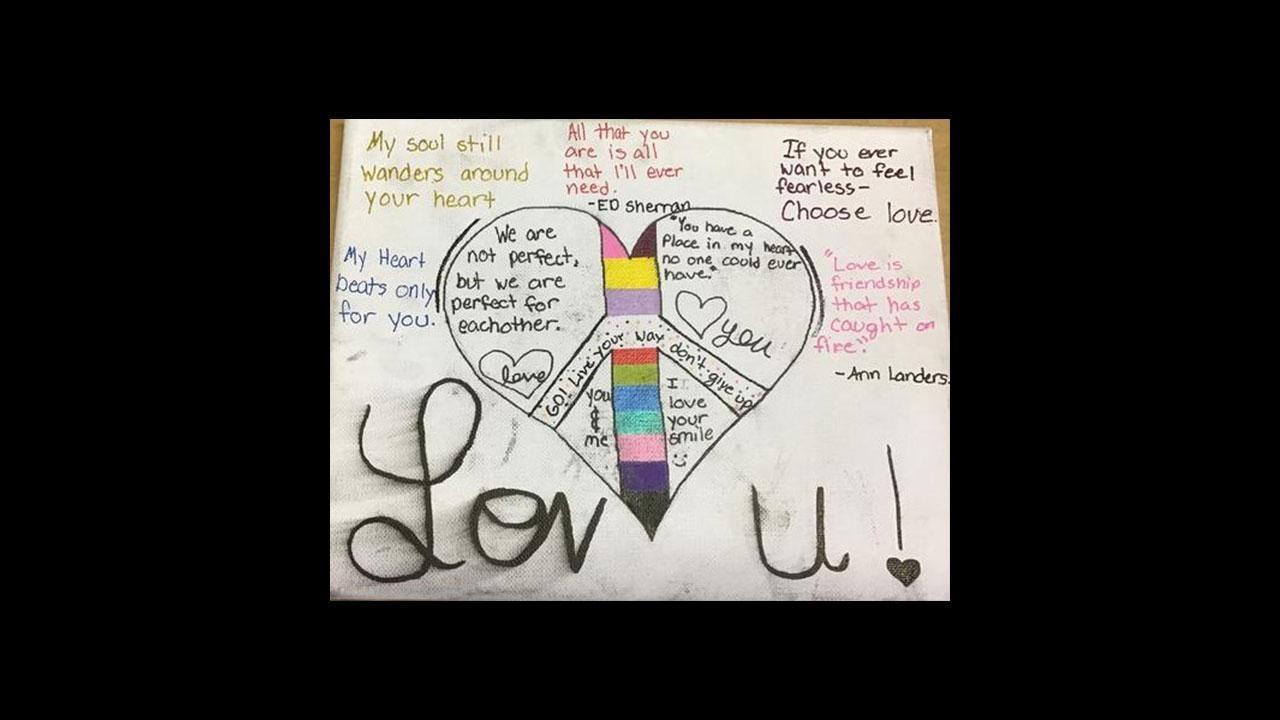 My soul still
wanders around
your heart
All that you
are is all
that I'll ever
need.
-ED Sherran
If you ever
want to feel
fearless-
Choose love.
My Heart
beats only
for you.
We are
not perfect,
but we are
perfect for
eachother.
love
"You have a
Place in my heart
no one could ever
have."
you
"Love is
friendship
that has
caught on
fire."
-Ann Landers.
GO! Live your way don't give up
you
&
me
I
love
your
smile
Lov u!